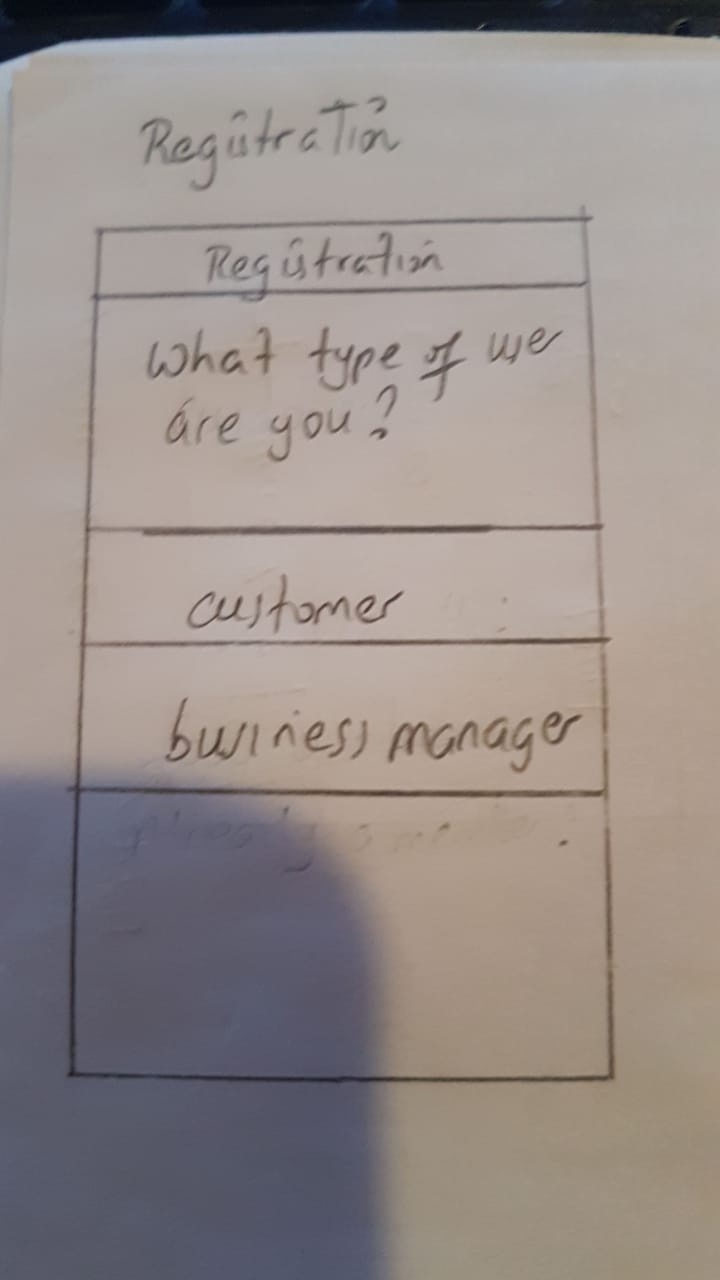 Registration
Registration
What type of user
are you?
customer
business manager